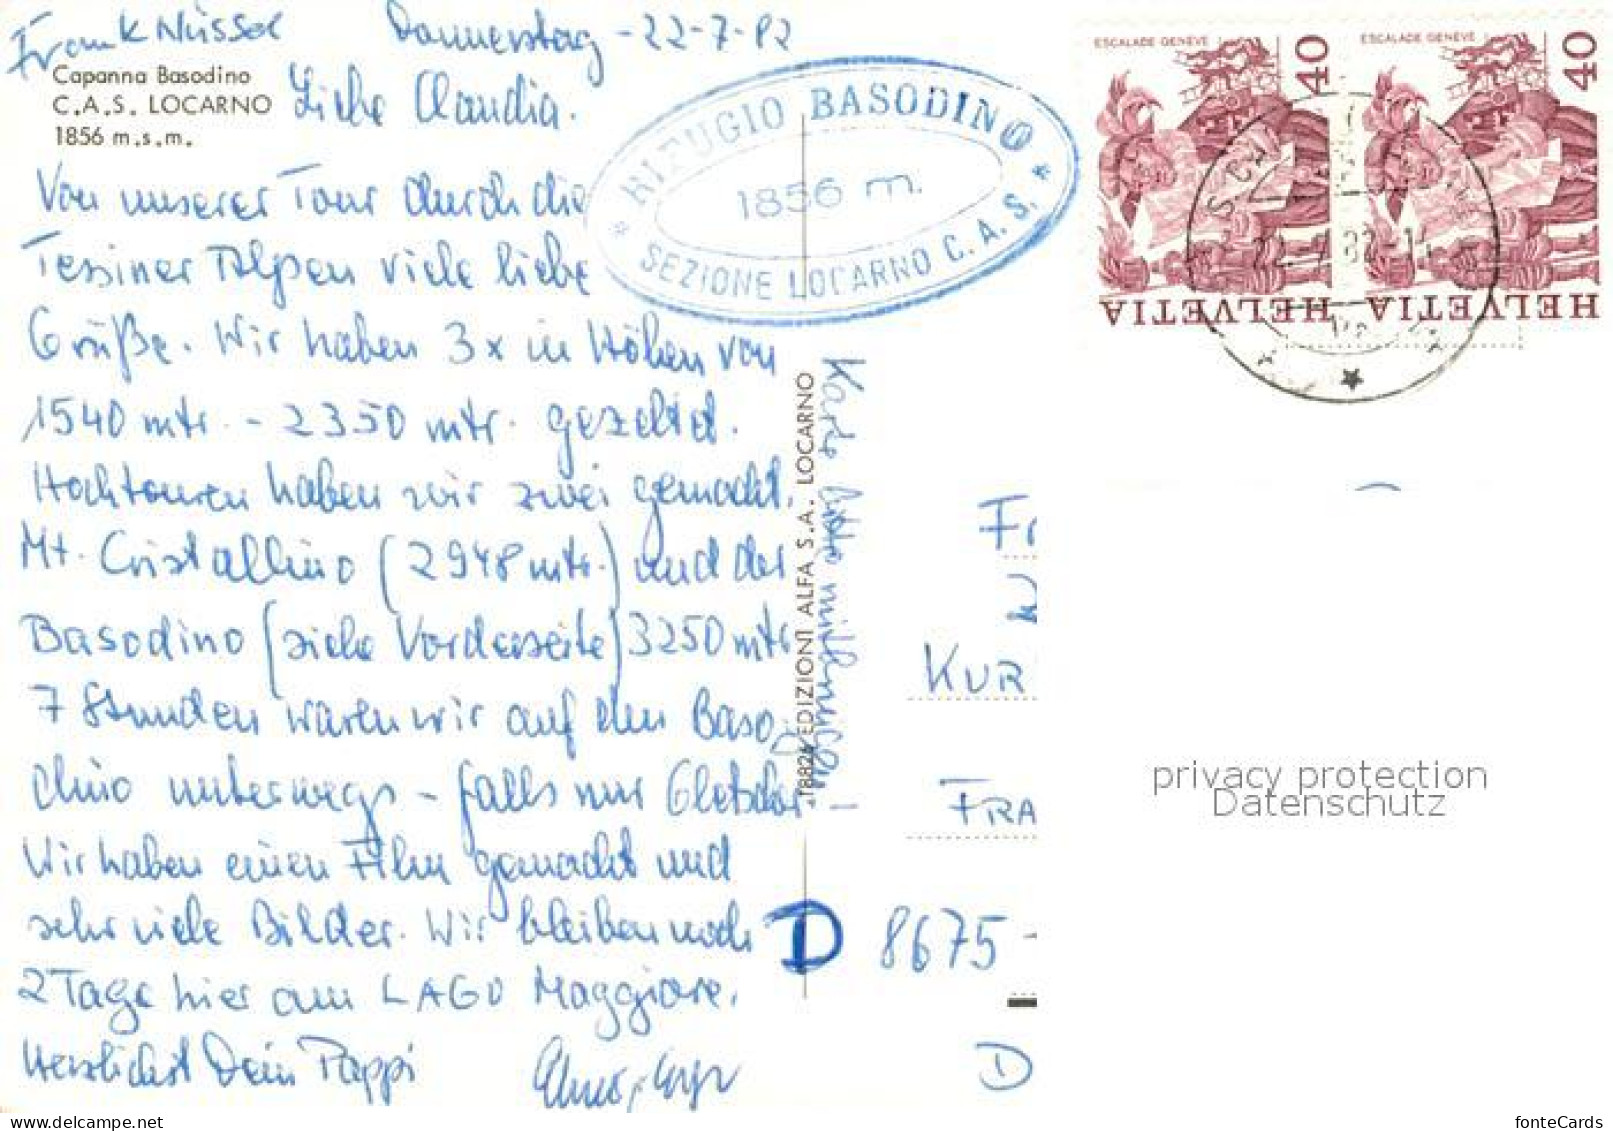 Frank Nüssel Donnerstag - 22-7-82
Capanna Basodino
C.A.S. LOCARNO
1856 m.s.m.
Liebe Claudia.
Von unserer Tour durch die
Tessiner Alpen viele liebe
Grüße. Wir haben 3x in Höhen von
1540 mtr. - 2350 mtr. gezeltet.
Hochtouren haben wir zwei gemacht.
Mt. Cristallino (2948 mtr.) und der
Basodino (siehe Vorderseite) 3250 mtr
7 Stunden waren wir auf den Baso
dino unterwegs - falls nur Gletscher
Wir haben einen Film gemacht und
sehr viele Bilder. Wir bleiben noch
2 Tage hier am LAGO Maggiore.
Herzlichst Dein Pappi
* RIFUGIO BASODINO *
1856 m.
SEZIONE LOCARNO C.A.S.
Karte bitte mitbringen!
18824 EDIZIONI ALFA S.A. LOCARNO
ESCALADE GENEVE
40
HELVETIA
ESCALADE GENEVE
40
HELVETIA
KUR
FRA
D 8675-
D
privacy protection
Datenschutz
www.delcampe.net
fonteCards